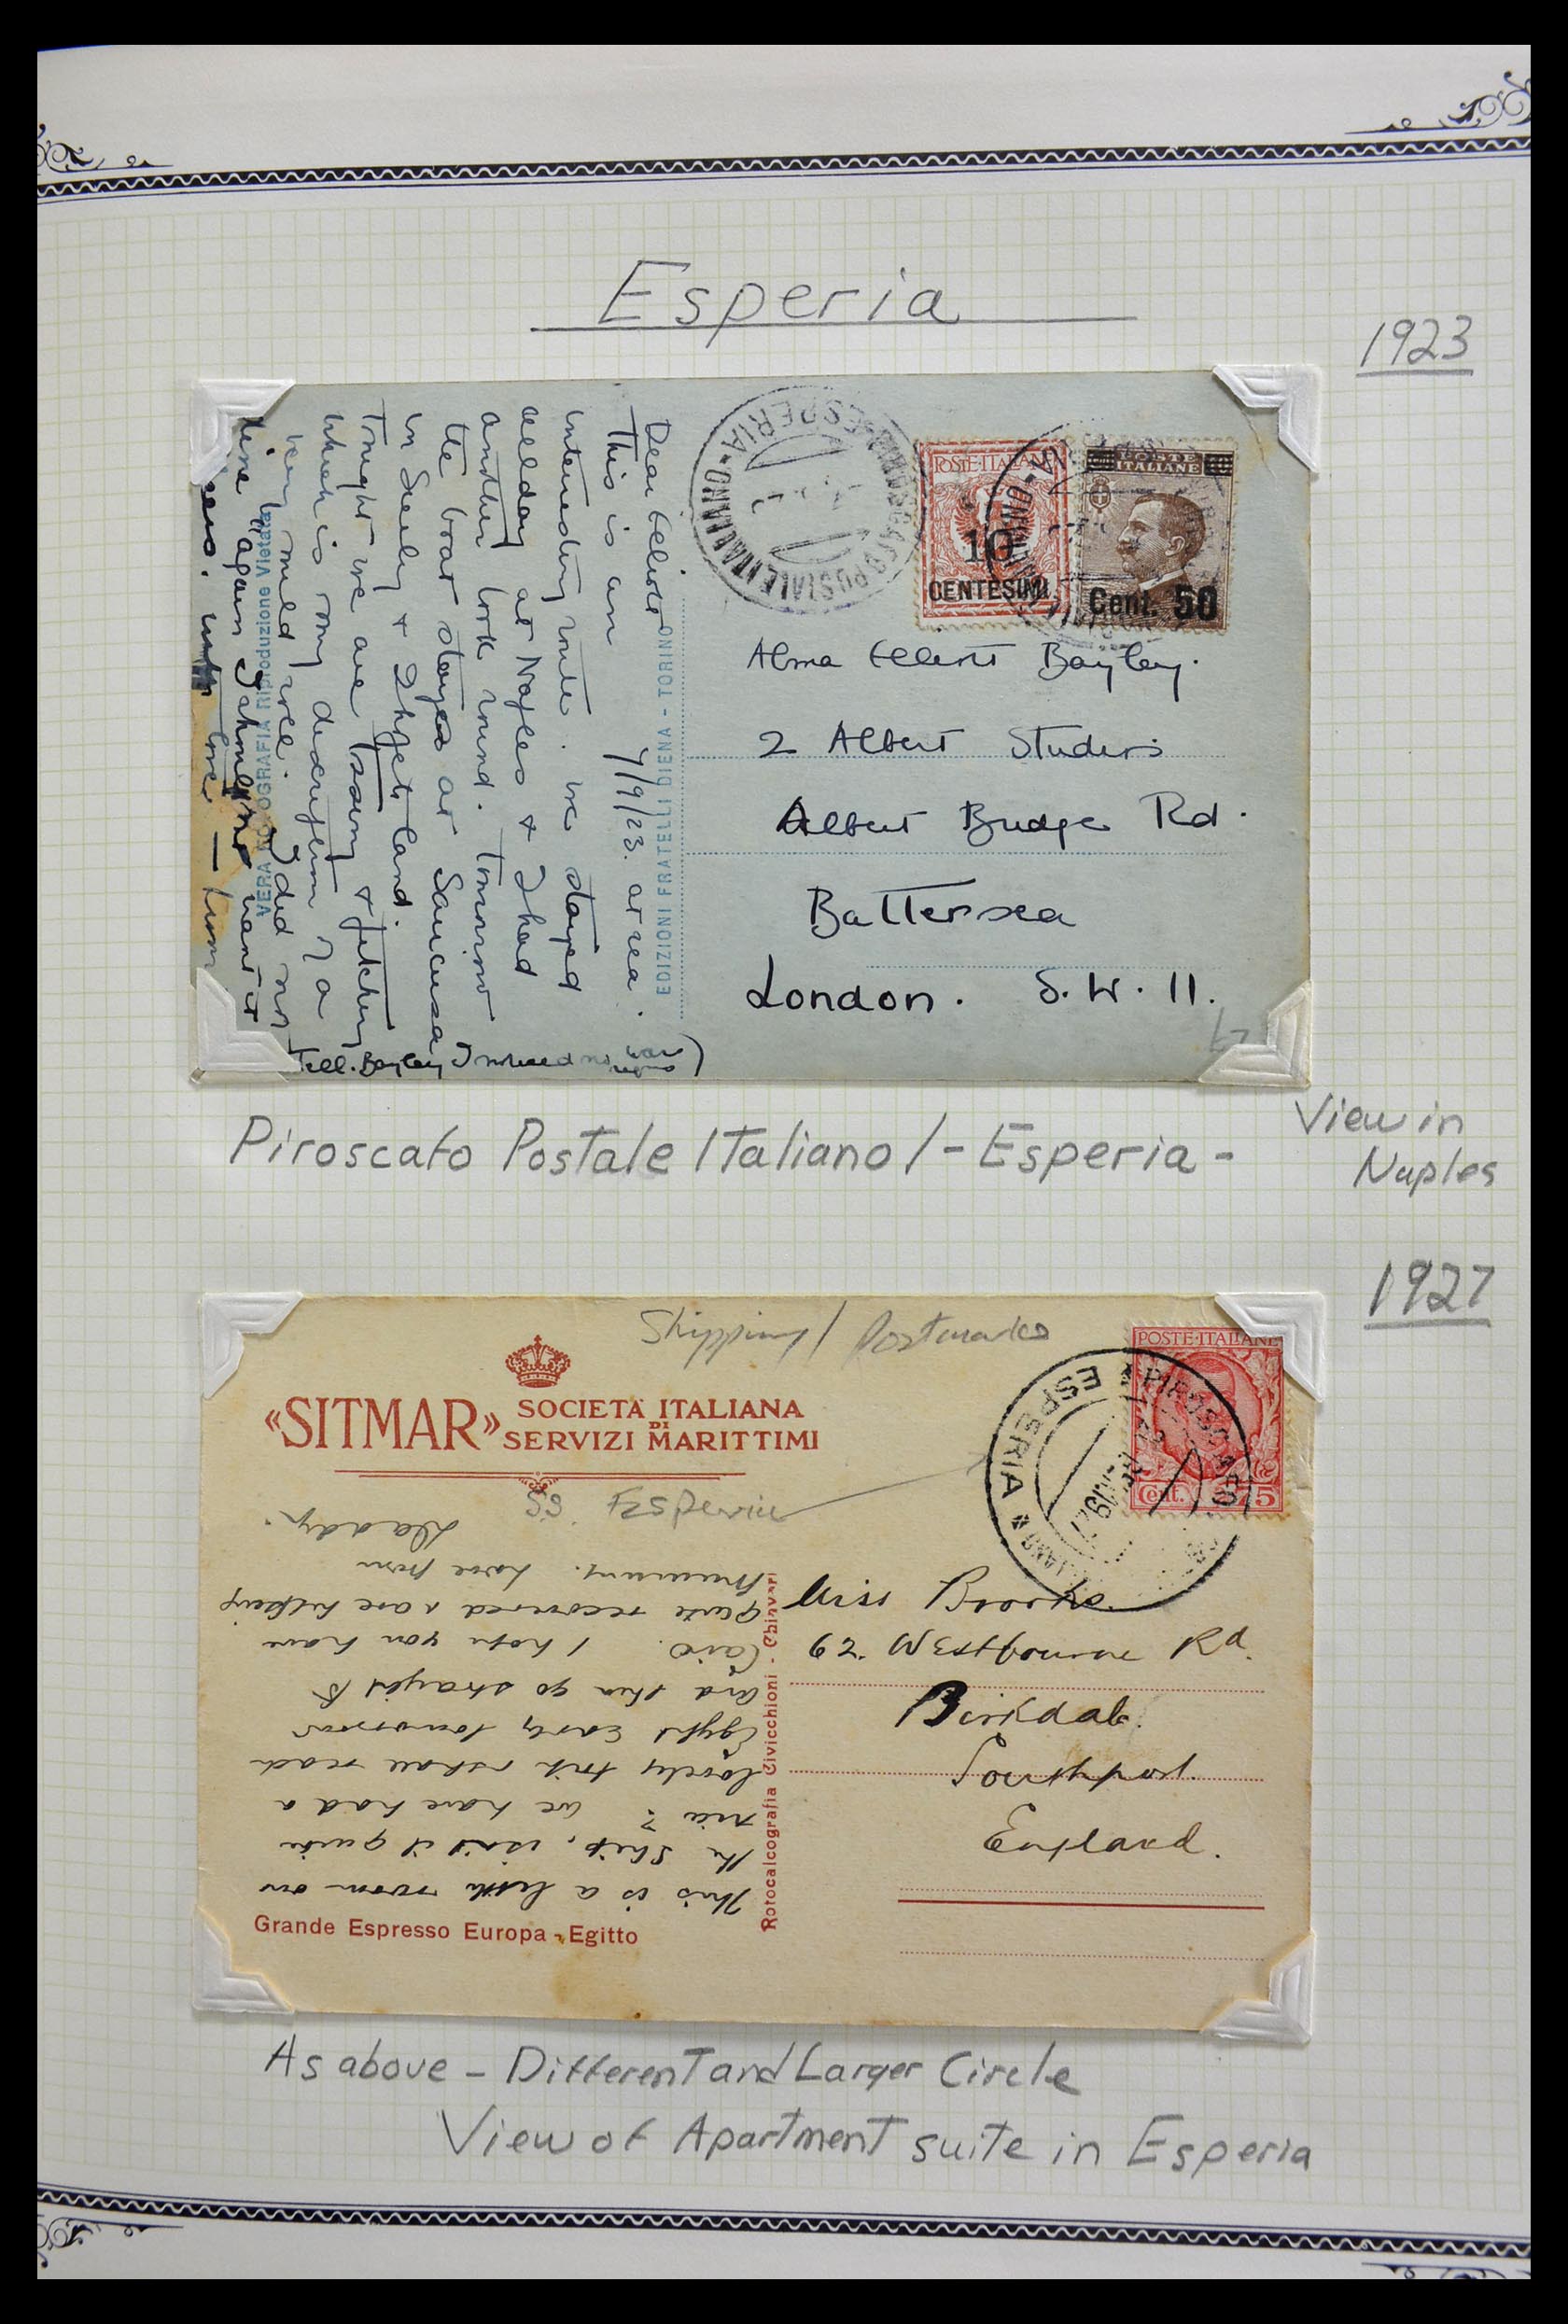 Esperia
1923
PIROSCAFO POSTALE ITALIANO • ESPERIA •
POSTE ITALIANE
10
CENTESIMI
POSTE
ITALIANE
Cent. 50
Dear
This is an 7/9/23. at sea.
interesting route. we stayed
all day at Naples & I had
another look round. Tomorrow
the boat stayes at
in Sicily & I hope to land.
Tonight we are &
which is my description of a
very mild roll. I did not
again & want
with love
Tell. Bayley I noticed no war
EDIZIONI FRATELLI DIENA - TORINO
VERA FOTOGRAFIA Riproduzione Vietata
Alma Bayley.
2 Albert Studios
Albert Bridge Rd.
Battersea
London. S.W. 11.
Piroscafo Postale Italiano / - Esperia -
View in
Naples
1927
Shipping / Postmarks
«SITMAR» SOCIETA ITALIANA
DI
SERVIZI MARITTIMI
SS. Esperia
POSTE ITALIANE
Cent. 75
PIROSCAFO
ESPERIA
1927
This is a little room on
the ship, isn't it quite
nice? We have had a
lovely trip & shall reach
Egypt early tomorrow
and then go straight to
Cairo. I hope you have
quite recovered & are helping
Mummy. Love from
Daddy.
Grande Espresso Europa - Egitto
Rotocalcografia Civicchioni - Chiavari
Miss Brooks.
62. Westbourne Rd.
Birkdale.
Southport.
England.
As above - Different and Larger Circle
View of Apartment suite in Esperia